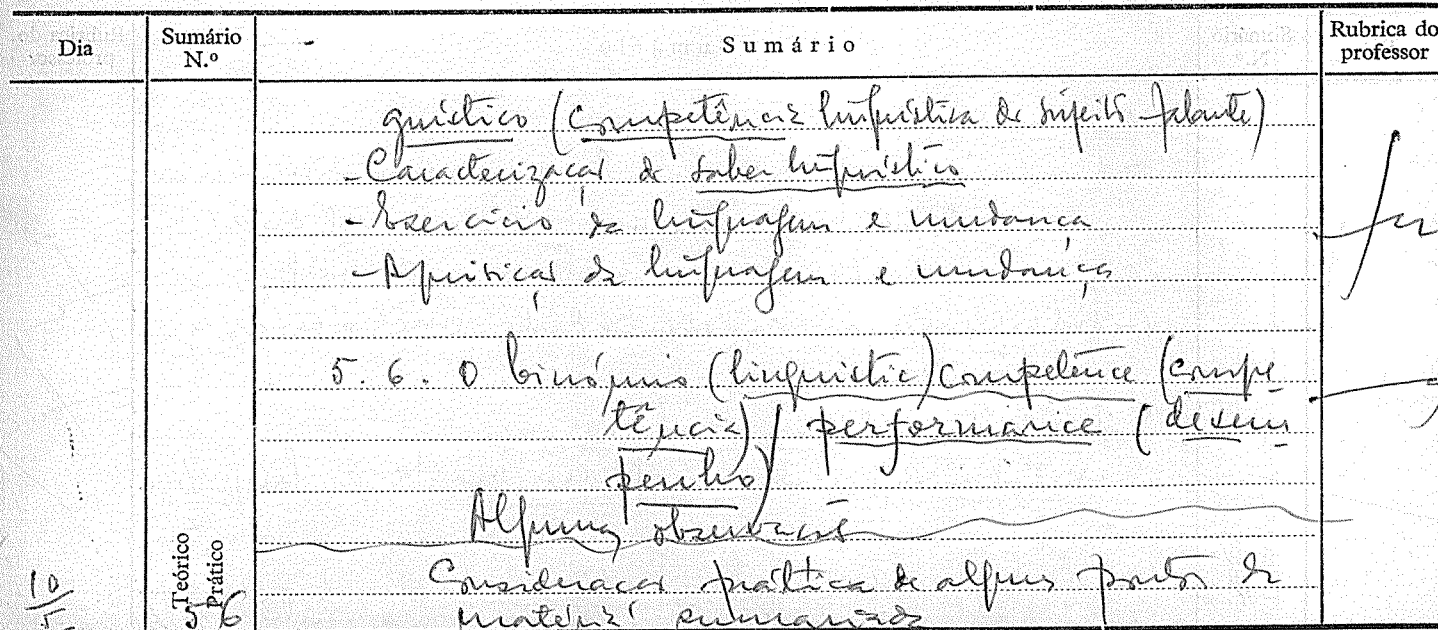 Dia Sumário N.º Sumário Rubrica do professor
guístico (competência linguística do sujeito falante)
- Caracterização do saber linguístico
- Exercício da linguagem e mudança
- Aquisição da linguagem e mudança
5.6. O binómio (linguistic) competence (compe-
tência) / performance (desem-
penho)
Algumas observações
Teórico
Prático
10 56 Consideração prática de alguns pontos da
matéria sumariada